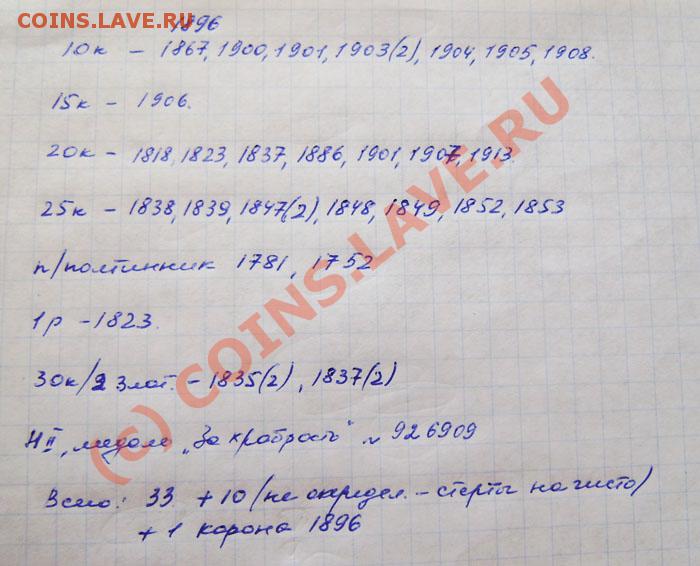 COINS.LAVE.RU
1896
10к – 1867, 1900, 1901, 1903(2), 1904, 1905, 1908.
15к – 1906.
20к – 1818, 1823, 1837, 1886, 1901, 1907, 1913.
25к – 1838, 1839, 1847(2), 1848, 1849, 1852, 1853
п/полтинник 1781, 1752
1р – 1823.
30к/2 злот. – 1835(2), 1837(2)
НII, медаль „За храбрость" № 926909
Всего: 33 + 10 (не определ. – стерты начисто)
+ 1 корона 1896
(c) COINS.LAVE.RU